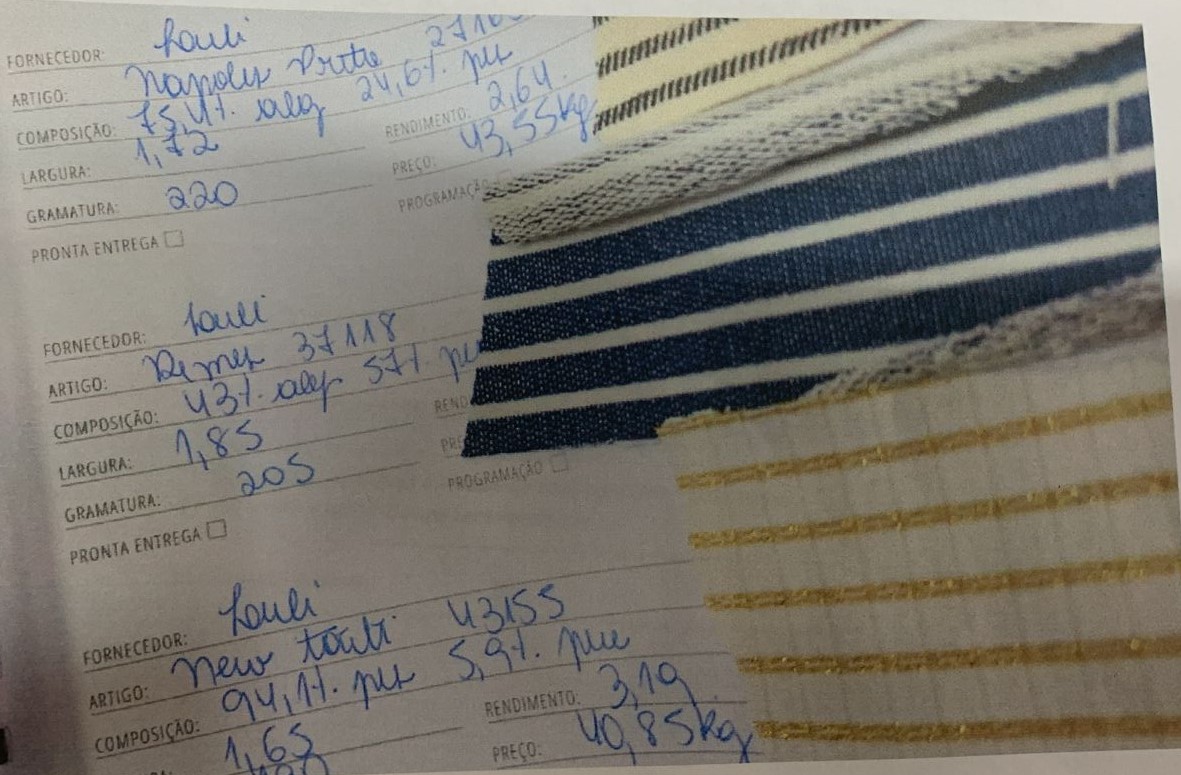 FORNECEDOR: Louli
ARTIGO: Napoles
COMPOSIÇÃO: 75,4%. alg 24,6%. pes RENDIMENTO: 2,64.
LARGURA: 1,72 PREÇO: 43,55kg
GRAMATURA: 220 PROGRAMAÇÃ
PRONTA ENTREGA
FORNECEDOR: Louli
ARTIGO: 37118
COMPOSIÇÃO: 43%. alg 57%.
LARGURA: 1,85 REND
GRAMATURA: 205 PRE
PRONTA ENTREGA PROGRAMAÇÃO
FORNECEDOR: Louli
ARTIGO: New 43155
COMPOSIÇÃO: 94,1%. pes 5,9%. pue RENDIMENTO: 3,19
1,65 PREÇO: 40,85kg